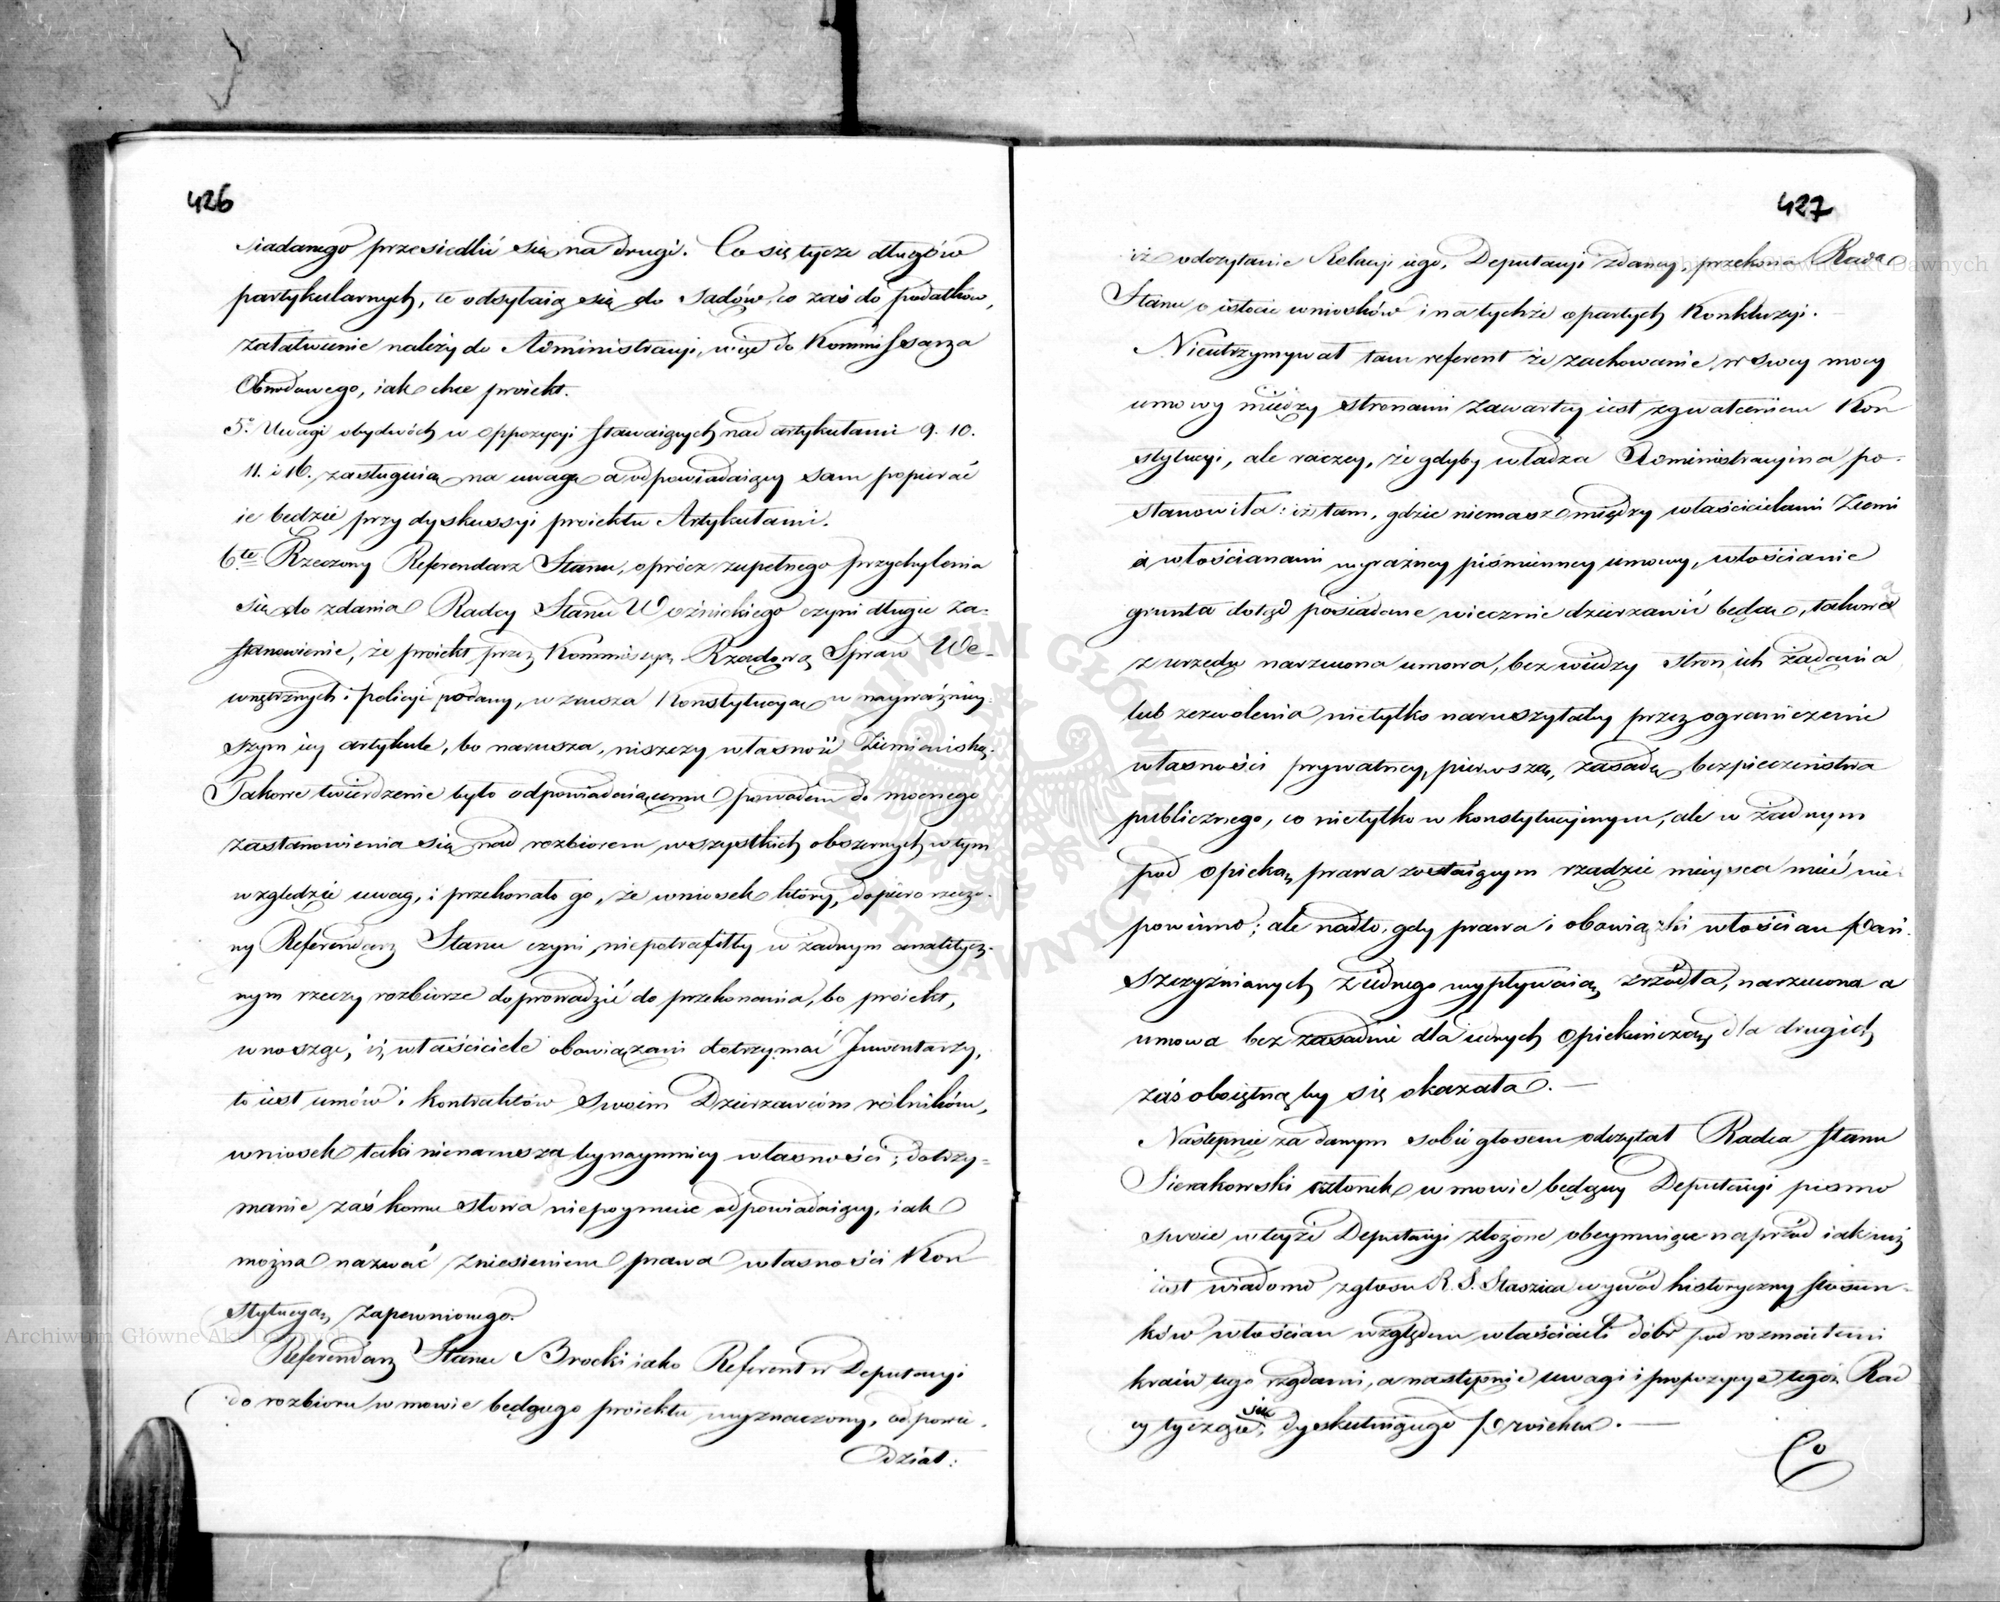 426
siadanego przesiedlić się na drugi. Co się tycze długów
partykularnych, te odsyłaią się do sądów, co zaś do podatków,
załatwienie należy do Administracyi, więc do Kommissarza
Obwodowego, iak chce proiekt.
5º Uwagi obydwóch w oppozycyi stawaiących nad artykułami 9. 10.
11. i 16. zasługuią na uwagę a odpowiadaiący sam popierać
ie będzie przy dyskussyi proiektu Artykułami.
6te Rzeczony Referendarz Stanu, oprócz zupełnego przychylenia
się do zdania Radcy Stanu Woźnickiego czyni długie za-
stanowienie, że proiekt przez Kommissyą Rządową Spraw We-
wnętrznych i policyi podany, wzrusza Konstytucyą w nayważniey-
szym iey artykule, bo narusza, niszczy własność Ziemiańską.
Takowe twierdzenie było odpowiadaiącemu powodem do mocnego
zastanowienia się nad rozbiorem wszystkich obszernych w tym
względzie uwag, i przekonało go, że wniosek który, dopiero rzeczo-
ny Referendarz Stanu czyni, niepotrafiłby w żadnym analitycz-
nym rzeczy rozbiorze doprowadzić do przekonania, bo proiekt,
wnosząc, iż właściciele obowiązani dotrzymać Inwentarzy,
to iest umów i kontraktów swoim Dzierżawcom rólnikóm,
wniosek taki nienarusza bynaymniey własności; dotrzy-
manie zaś komu słowa niepoymuie odpowiadaiący, iak
można nazwać zniesieniem prawa własności Kon
stytucyą zapewnionego.
Referendarz Stanu Brocki iako Referent w Deputacyi
do rozbioru w mowie będącego proiektu wyznaczony, odpowie-
dział:
427
iż odczytanie Relacyi iego, Deputacyi zdaney, przekona Radę
Stanu o istocie wniosków i na tychże opartych Konkluzyi.
Nieutrzymywał tam referent że zachowanie w swey mocy
umowy między stronami zawartey iest zgwałceniem Kon
stytucyi, ale raczey, że gdyby władza Administracyina po-
stanowiła: iż tam, gdzie niemasz między właścicielami Ziemi
a włościanami wyraźney piśmienney umowy, włościanie
grunta dotąd posiadane wiecznie dzierżawić będą, takowa
z urzędu narzucona umowa, bez wiedzy stron ich żądania
lub zezwolenia nietylko naruszyłaby przez ograniczenie
własności prywatney, pierwszą, zasadę bezpieczeństwa
publicznego, co nietylko w konstytucyinym, ale w żadnym
pod opieką prawa zostaiącym rządzie mieysca mieć nie-
powinno; ale nadto, gdy prawa i obowiązki włościan pań-
szczyźnianych z iednego wypływaią źrzódła, narzucona a
umowa bez zasadnie dla iednych opiekuńczą, dla drugich
zaś oboiętną by się okazała. —
Następnie za danym sobie głosem odczytał Radca Stanu
Sierakowski członek w mowie będącey Deputacyi pismo
swoie w teyże Deputacyi złożone, obeymuiące naprzód iak iuż
iest wiadomo z głosu R. S. Staszica wywód historyczny stosun-
ków włościan względem właścicieli dóbr pod rozmaitemi
kraiu tego rządami, a następnie uwagi i propozycye tegoż Rad
cy tyczące się, dyskutuiącego proiektu. —
Co